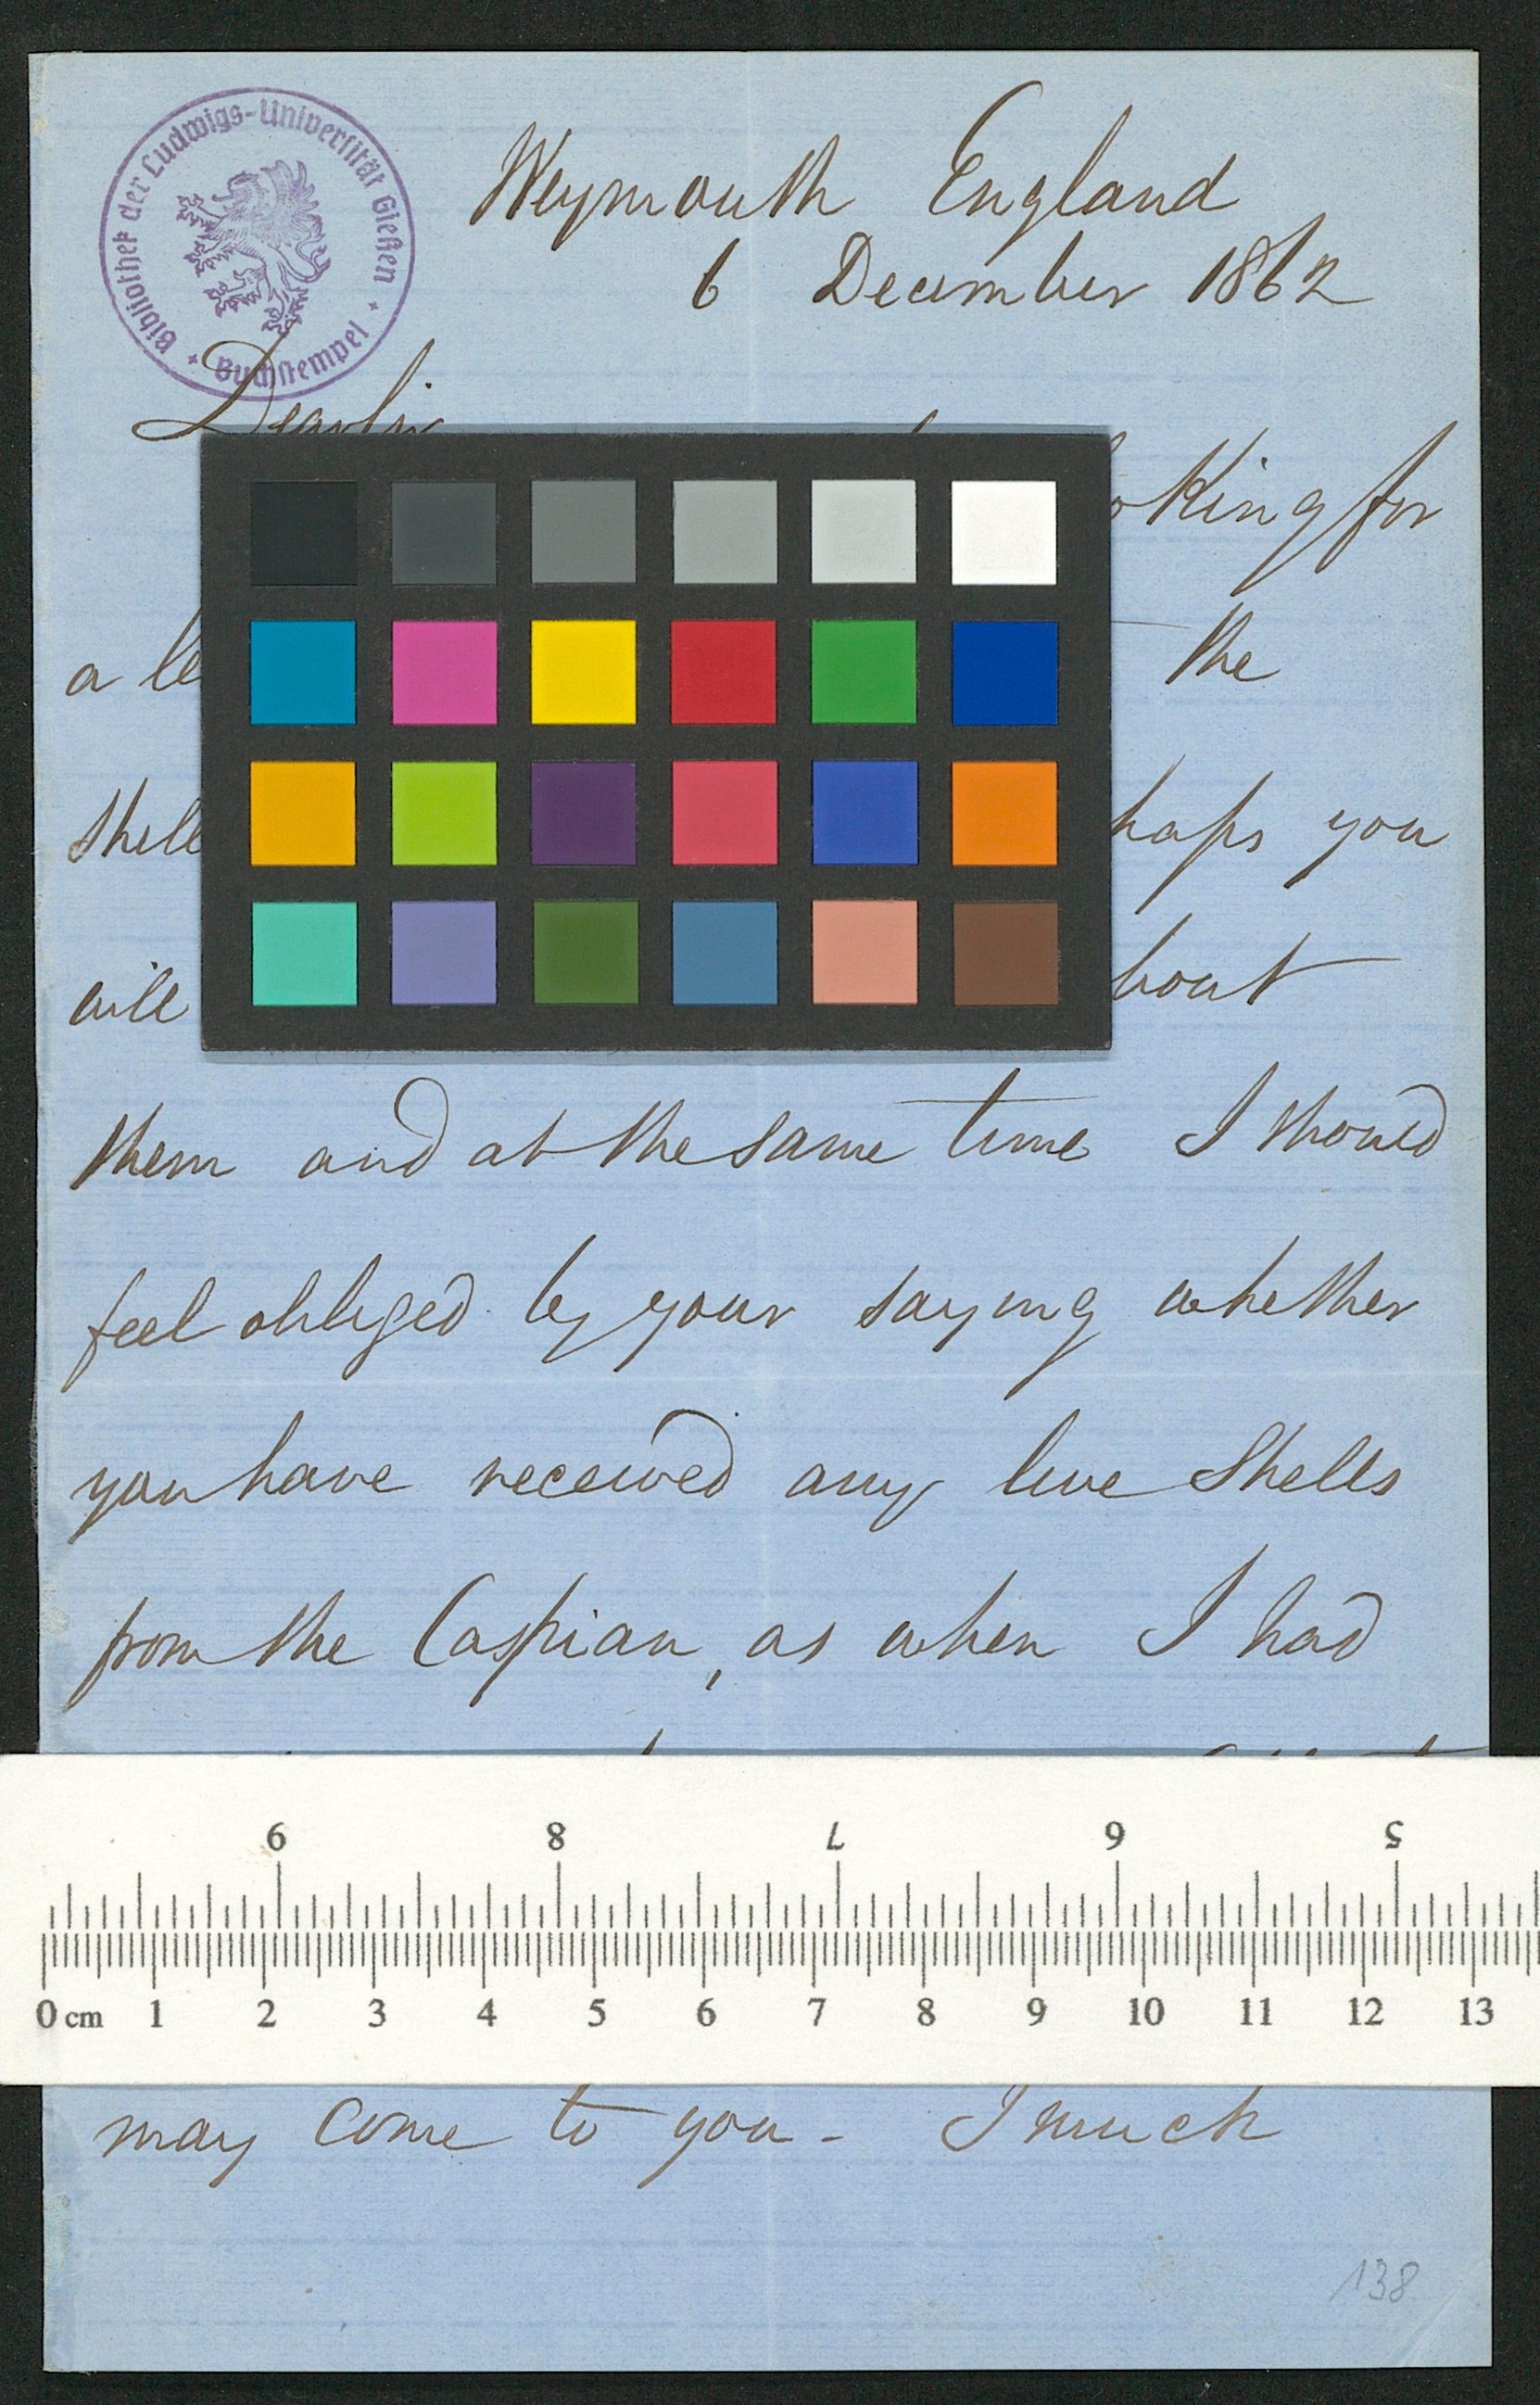 Bibliothek der Ludwigs-Universität Gießen
Buchstempel
Weymouth England
6 December 1862
Dear Sir
for
a
the
you
will
them and at the same time I should
feel obliged by your saying whether
you have received any live Shells
from the Caspian, as when I had
9 8 7 6 5
0 cm 1 2 3 4 5 6 7 8 9 10 11 12 13
may come to you - I much
138